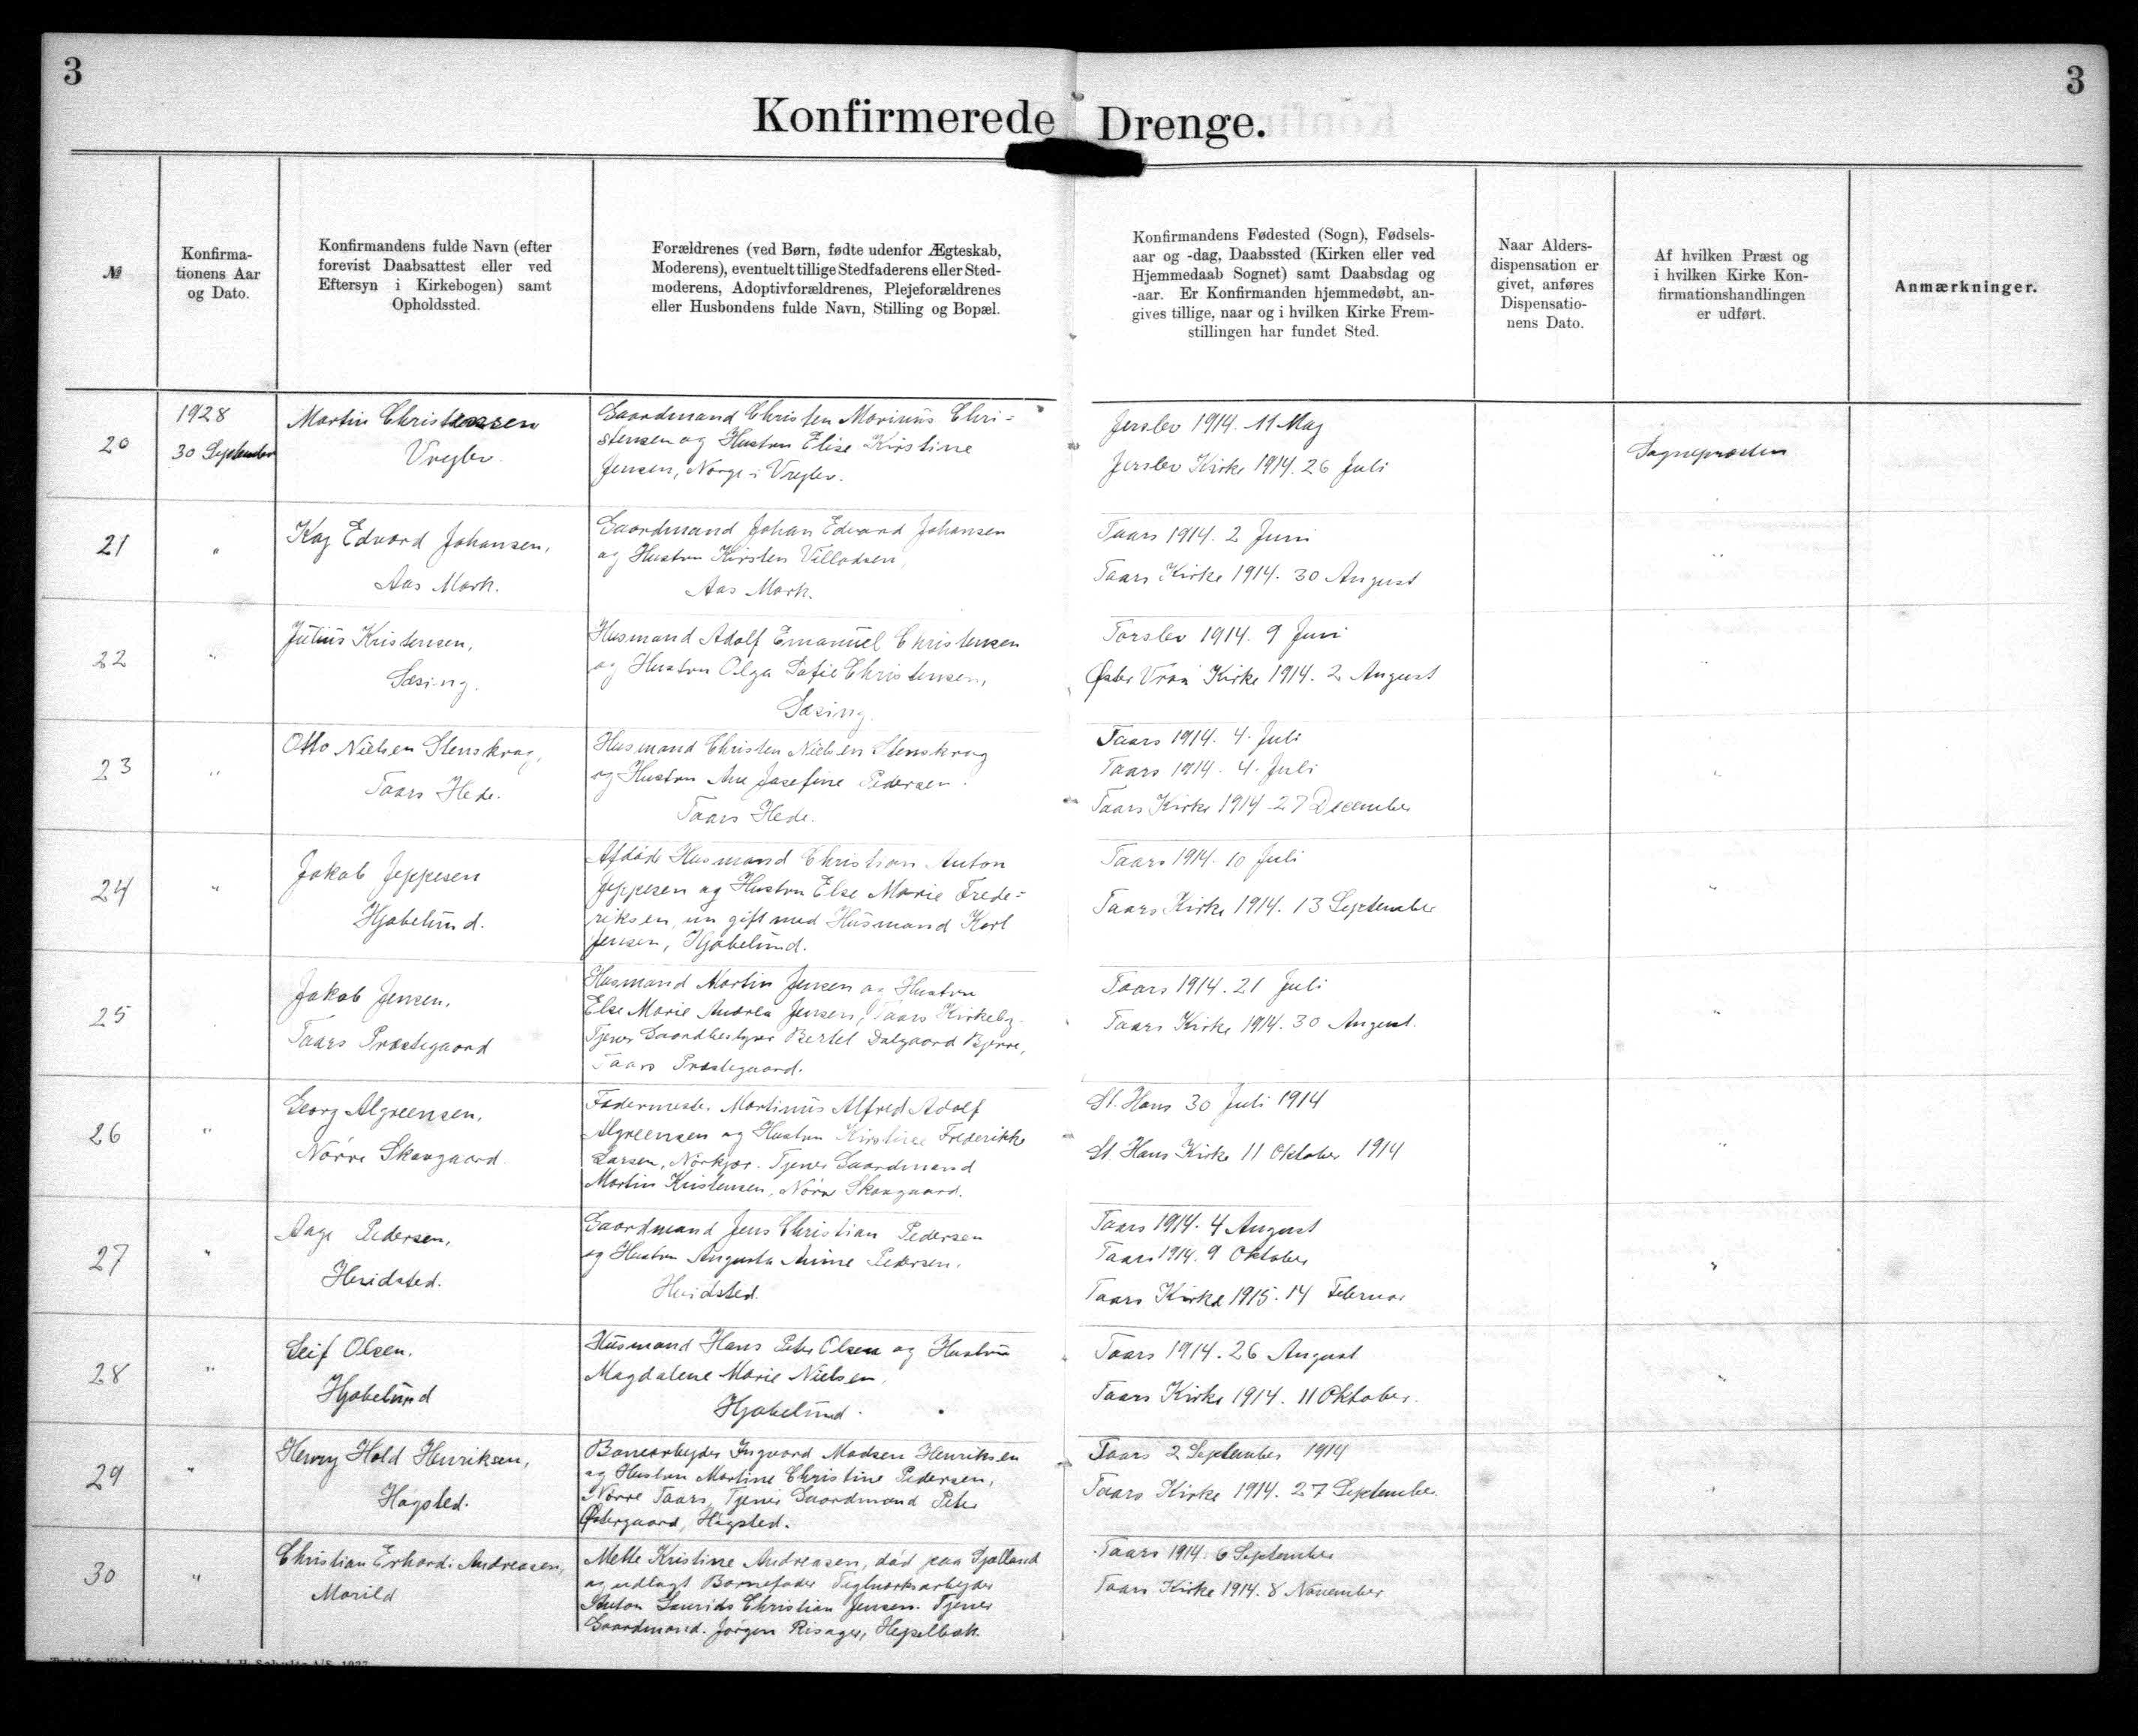 3
3
Konfirmerede Drenge.
№
Konfirma-
tionens Aar
og Dato.
Konfirmandens fulde Navn (efter
forevist Daabsattest eller ved
Eftersyn i Kirkebogen) samt
Opholdssted.
Forældrenes (ved Børn, fødte udenfor Ægteskab,
Moderens), eventuelt tillige Stedfaderens eller Sted-
moderens, Adoptivforældrenes, Plejeforældrenes
eller Husbondens fulde Navn, Stilling og Bopæl.
Konfirmandens Fødested (Sogn), Fødsels-
aar og -dag, Daabssted (Kirken eller ved
Hjemmedaab Sognet) samt Daabsdag og
-aar. Er Konfirmanden hjemmedøbt, an-
gives tillige, naar og i hvilken Kirke Frem-
stillingen har fundet Sted.
Naar Alders-
dispensation er
givet, anføres
Dispensatio-
nens Dato.
Af hvilken Præst og
i hvilken Kirke Kon-
firmationshandlingen
er udført.
Anmærkninger.
20
1928
30 September
Martin Christensen
Vreglev.
Gaardmand Christen Marinus Chri-
stensen og Hustru Elise Kirstine
Jensen, Norge i Vreglev.
Jerslev 1914. 11 Maj
Jerslev Kirke 1914. 26 Juli
Sognepræsten
21
"
Kaj Edvard Johansen,
Aas Mark.
Gaardmand Johan Edvard Johansen
og Hustru Kirsten Villadsen,
Aas Mark.
Taars 1914. 2 Juni
Taars Kirke 1914. 30 August
"
22
"
Julius Kristensen,
Sæsing.
Husmand Adolf Emanuel Christensen
og Hustru Olga Sofie Christensen,
Sæsing.
Torslev 1914. 9 Juni
Øster Vraa Kirke 1914. 2 August
"
23
"
Otto Nielsen Stenskrog,
Taars Hede.
Husmand Christen Nielsen Stenskrog
og Hustru Ane Josefine Pedersen.
Taars Hede.
Taars 1914. 4. Juli
Taars 1914. 4. Juli
Taars Kirke 1914. 27 December
"
24
"
Jakob Jeppesen
Hjabelund.
Afdøde Husmand Christian Anton
Jeppesen og Hustru Else Marie Frede-
riksen, nu gift med Husmand Karl
Jensen, Hjabelund.
Taars 1914. 10 Juli
Taars Kirke 1914. 13 September
"
25
Jakob Jensen.
Taars Præstegaard
Husmand Martin Jensen og Hustru
Else Marie Andrea Jensen, Taars Kirkeby.
Tjener Gaardbestyrer Bertel Dalgaard Bjerre,
Taars Præstegaard.
Taars 1914. 21 Juli
Taars Kirke 1914. 30 August.
"
26
"
Georg Algreensen,
Nørre Skovgaard.
Fodermest. Martinus Alfred Adolf
Algreensen og Hustru Kirstine Frederikke
Larsen, Nørkjær. Tjener Gaardmand
Martin Kristensen, Nørre Skovgaard.
St. Hans 30 Juli 1914
St Hans Kirke 11 Oktober 1914
"
27
"
Aage Pedersen,
Hvidsted.
Gaardmand Jens Christian Pedersen
og Hustru Augusta Anine Pedersen.
Hvidsted.
Taars 1914. 4 August
Taars 1914. 9 Oktober
Taars Kirke 1915. 14 Februar
"
28
"
Leif Olsen.
Hjabelund
Husmand Hans Peter Olsen og Hustru
Magdalene Marie Nielsen.
Hjabelund.
Taars 1914. 26 August
Taars Kirke 1914. 11 Oktober.
"
29
"
Henry Hold Henriksen,
Høgsted.
Banearbejder Ingvard Madsen Henriksen
og Hustru Martine Christine Pedersen,
Nørre Taars. Tjener Gaardmand Peter
Østergaard, Høgsted.
Taars 2 September 1914
Taars Kirke 1914. 27 September.
"
30
"
Christian Erhardi Andreasen,
Morild
Mette Kristine Andreasen, død paa Sjælland
og udlagt Barnefader Teglværksarbejder
Anton Laurids Christian Jensen. Tjener
Gaardmand. Jørgen Risager, Hepelbæk.
Taars 1914. 6 September
Taars Kirke 1914. 8 November